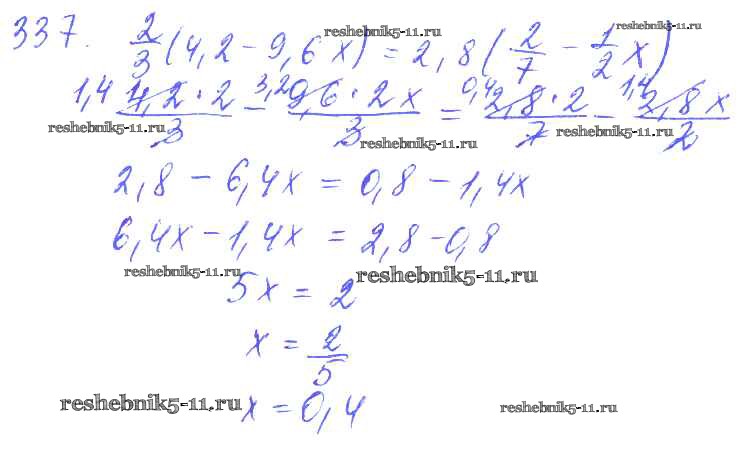 337. 2/3 (4,2 - 9,6x) = 2,8 (2/7 - 1/2 x)
reshebnik5-11.ru reshebnik5-11.ru
1,4 4,2·2/3 - 3,2 9,6·2x/3 = 0,4 2,8·2/7 - 1,4 2,8x/2
reshebnik5-11.ru reshebnik5-11.ru reshebnik5-11.ru
2,8 - 6,4x = 0,8 - 1,4x
6,4x - 1,4x = 2,8 - 0,8
reshebnik5-11.ru reshebnik5-11.ru
5x = 2
x = 2/5
reshebnik5-11.ru x = 0,4 reshebnik5-11.ru